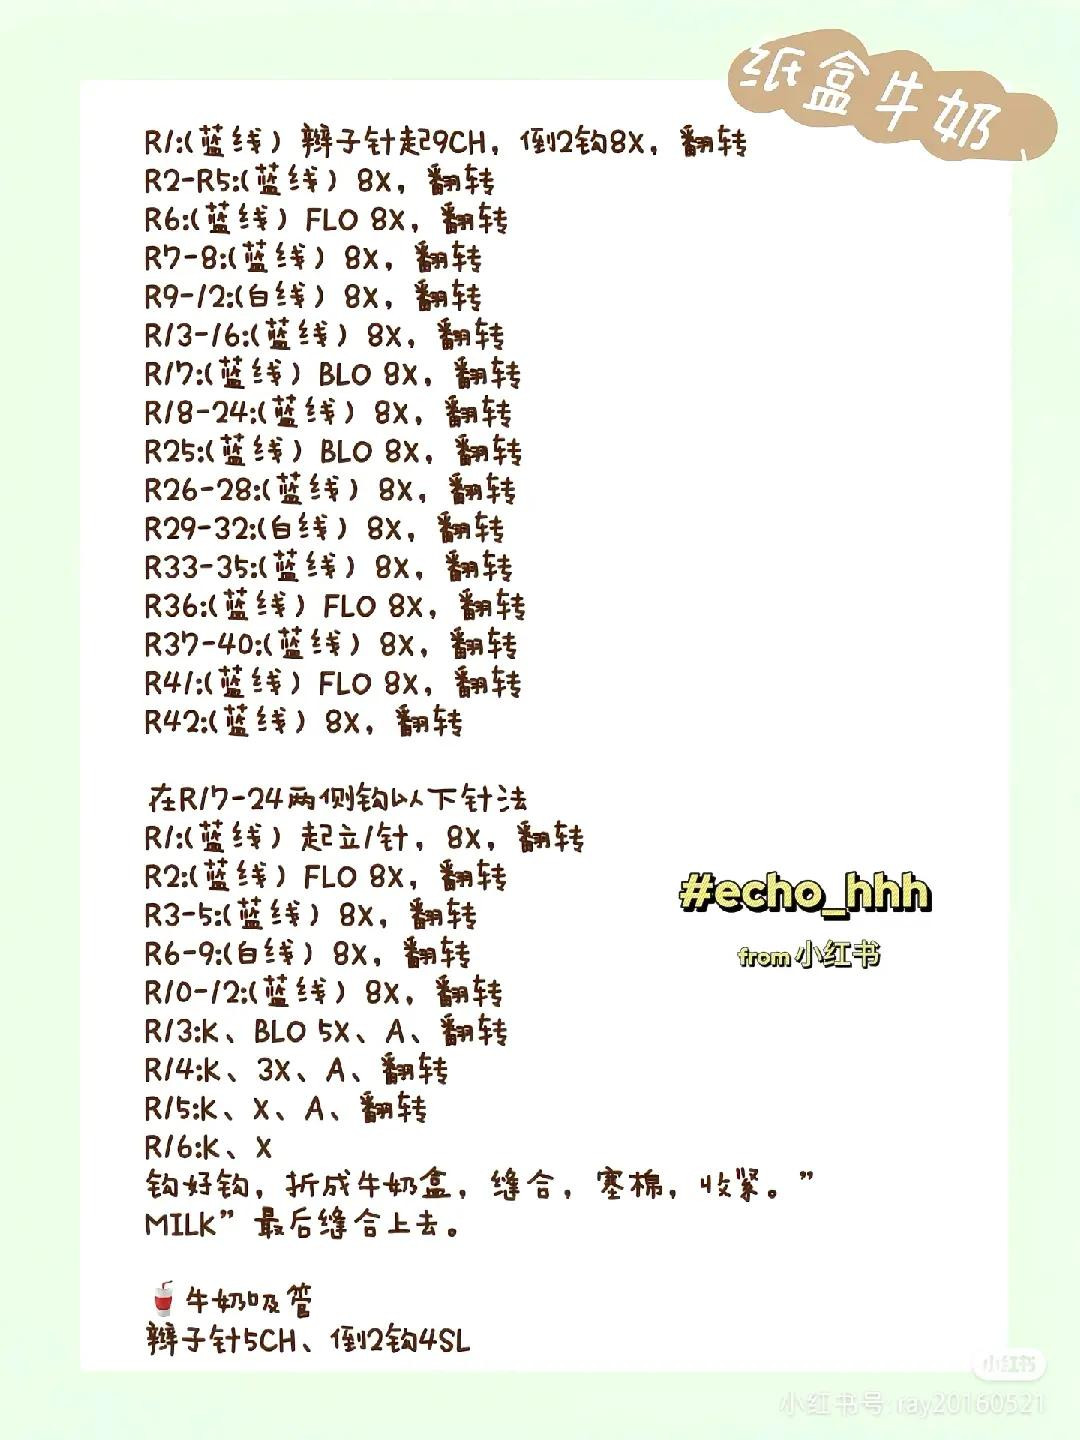 纸盒牛奶
R1:(蓝线）辫子针起9CH，倒2钩8X，翻转
R2-R5:(蓝线）8X，翻转
R6:(蓝线）FLO 8X，翻转
R7-8:(蓝线）8X，翻转
R9-12:(白线）8X，翻转
R13-16:(蓝线）8X，翻转
R17:(蓝线）BLO 8X，翻转
R18-24:(蓝线）8X，翻转
R25:(蓝线）BLO 8X，翻转
R26-28:(蓝线）8X，翻转
R29-32:(白线）8X，翻转
R33-35:(蓝线）8X，翻转
R36:(蓝线）FLO 8X，翻转
R37-40:(蓝线）8X，翻转
R41:(蓝线）FLO 8X，翻转
R42:(蓝线）8X，翻转
在R17-24两侧钩以下针法
R1:(蓝线）起立1针，8X，翻转
R2:(蓝线）FLO 8X，翻转
R3-5:(蓝线）8X，翻转
R6-9:(白线）8X，翻转
R10-12:(蓝线）8X，翻转
R13:K、BLO 5X、A、翻转
R14:K、3X、A、翻转
R15:K、X、A、翻转
R16:K、X
钩好钩，折成牛奶盒，缝合，塞棉，收紧。”
MILK”最后缝合上去。
#echo_hhh
from 小红书
牛奶吸管
辫子针5CH、倒2钩4SL
小红书
小红书号: ray20160521